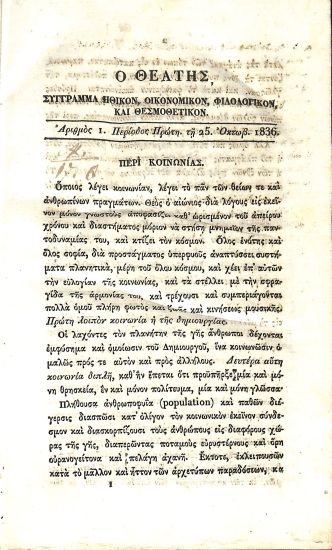 Ο ΘΕΑΤΗΣ,
ΣΥΓΓΡΑΜΜΑ ΗΘΙΚΟΝ, ΟΙΚΟΝΟΜΙΚΟΝ, ΦΙΛΟΛΟΓΙΚΟΝ,
ΚΑΙ ΘΕΣΜΟΘΕΤΙΚΟΝ.
Ἀριθμὸς 1. Περίοδος Πρώτη. τῇ 25. Ὀκτωβ. 1836.
ΠΕΡΙ ΚΟΙΝΩΝΙΑΣ.
Ὅποιος λέγει κοινωνίαν, λέγει τὸ πᾶν τῶν θείων τε καὶ
ἀνθρωπίνων πραγμάτων. Θεὸς ὁ αἰώνιος διὰ λόγους εἰς ἐκεῖ-
νον μόνον γνωστοὺς ἀποφασίζει καθ' ὡρισμένον τοῦ ἀπείρου
χρόνου καὶ διαστήματος μόριον νὰ στήσῃ μνημεῖον τῆς παν-
τοδυναμίας του, καὶ κτίζει τὸν κόσμον. Ὅλος ἑνότης καὶ
ὅλος σοφία, διὰ προστάγματος ὑπερφυοῦς ἀναπτύσσει συστή-
ματα πλανητικὰ, μέρη τοῦ ὅλου κόσμου, καὶ χέει ἐπ' αὐτῶν
τὴν εὐλογίαν τῆς κοινωνίας, καὶ τὰ στέλλει μὲ τὴν σφρα-
γίδα τῆς ἁρμονίας του, καὶ τρέχουσι καὶ συμπεριάγονται
πολλὰ ὁμοῦ πλήρη φωτὸς καὶ ζωῆς καὶ κινήσεως μουσικῆς.
Πρώτη λοιπὸν κοινωνία ἡ τῆς δημιουργίας.
Οἱ λαχόντες τὸν πλανήτην τῆς γῆς ἄνθρωποι δέχονται
ἐμφύσημα καὶ ὁμοίωσιν τοῦ Δημιουργοῦ, ἵνα κοινωνῶσιν ὁ-
μαλῶς πρός τε αὐτὸν καὶ πρὸς ἀλλήλους. Δευτέρα αὕτη
κοινωνία διπλῆ, καθ' ἣν ἕπεται ὅτι προϋπῆρξε μία καὶ μό-
νη θρησκεία, ἓν καὶ μόνον πολίτευμα, μία καὶ μόνη γλῶσσα.
Πλήθουσα ἀνθρωποφυΐα (population) καὶ παθῶν διέ-
γερσις διασπῶσι κατ' ὀλίγον τὸν κοινωνικὸν ἐκεῖνον σύνδε-
σμον καὶ διασκορπίζουσι τοὺς ἀνθρώπους εἰς διαφόρους χώ-
ρας τῆς γῆς, διαπερῶντας ποταμοὺς εὐρυστέρνους καὶ ὄρη
οὐρανογείτονα καὶ πελάγη ἀχανῆ. Ἔκτοτε, ἐκλειπουσῶν
κατὰ τὸ μᾶλλον καὶ ἧττον τῶν ἀρχετύπων παραδόσεων, κα
1